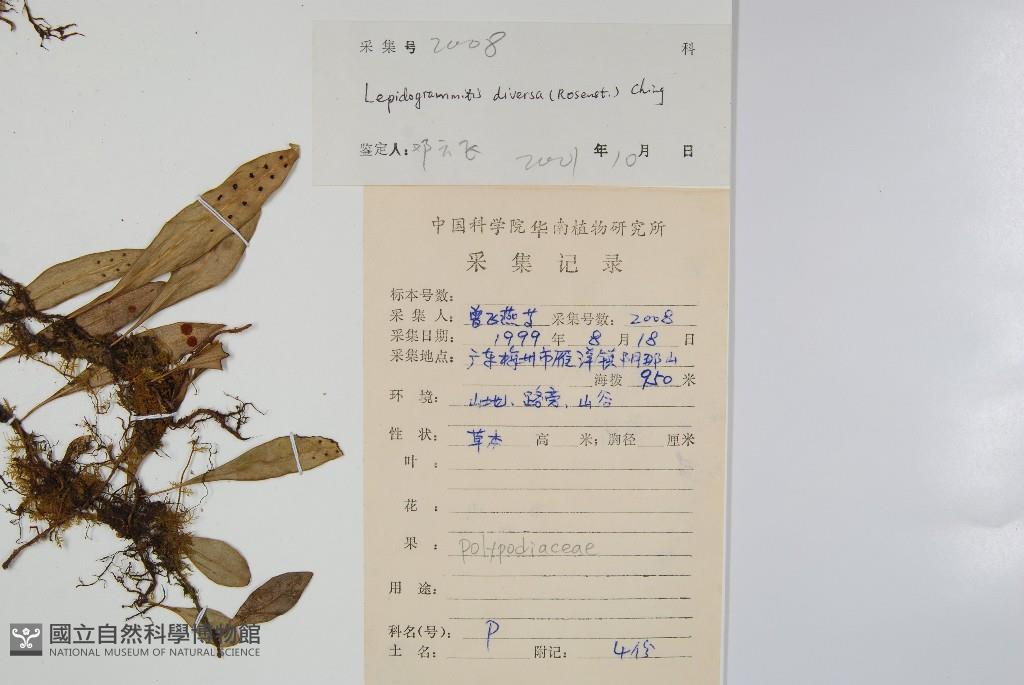 采集号 2008 科
Lepidogrammitis diversa (Rosenst.) Ching
鉴定人:邓云飞 2021 年 10 月 日
中国科学院华南植物研究所
采集记录
标本号数:
采集人:曾飞燕等 采集号数: 2008
采集日期: 1999 年 8 月 18 日
采集地点:广东梅州市雁洋镇阴那山
海拨 950 米
环境: 山地、路旁、山谷
性状: 草本 高 米; 胸径 厘米
叶:
花:
果: polypodiaceae
用途:
科名(号): P
土名: 附记: 4份
國立自然科學博物館
NATIONAL MUSEUM OF NATURAL SCIENCE